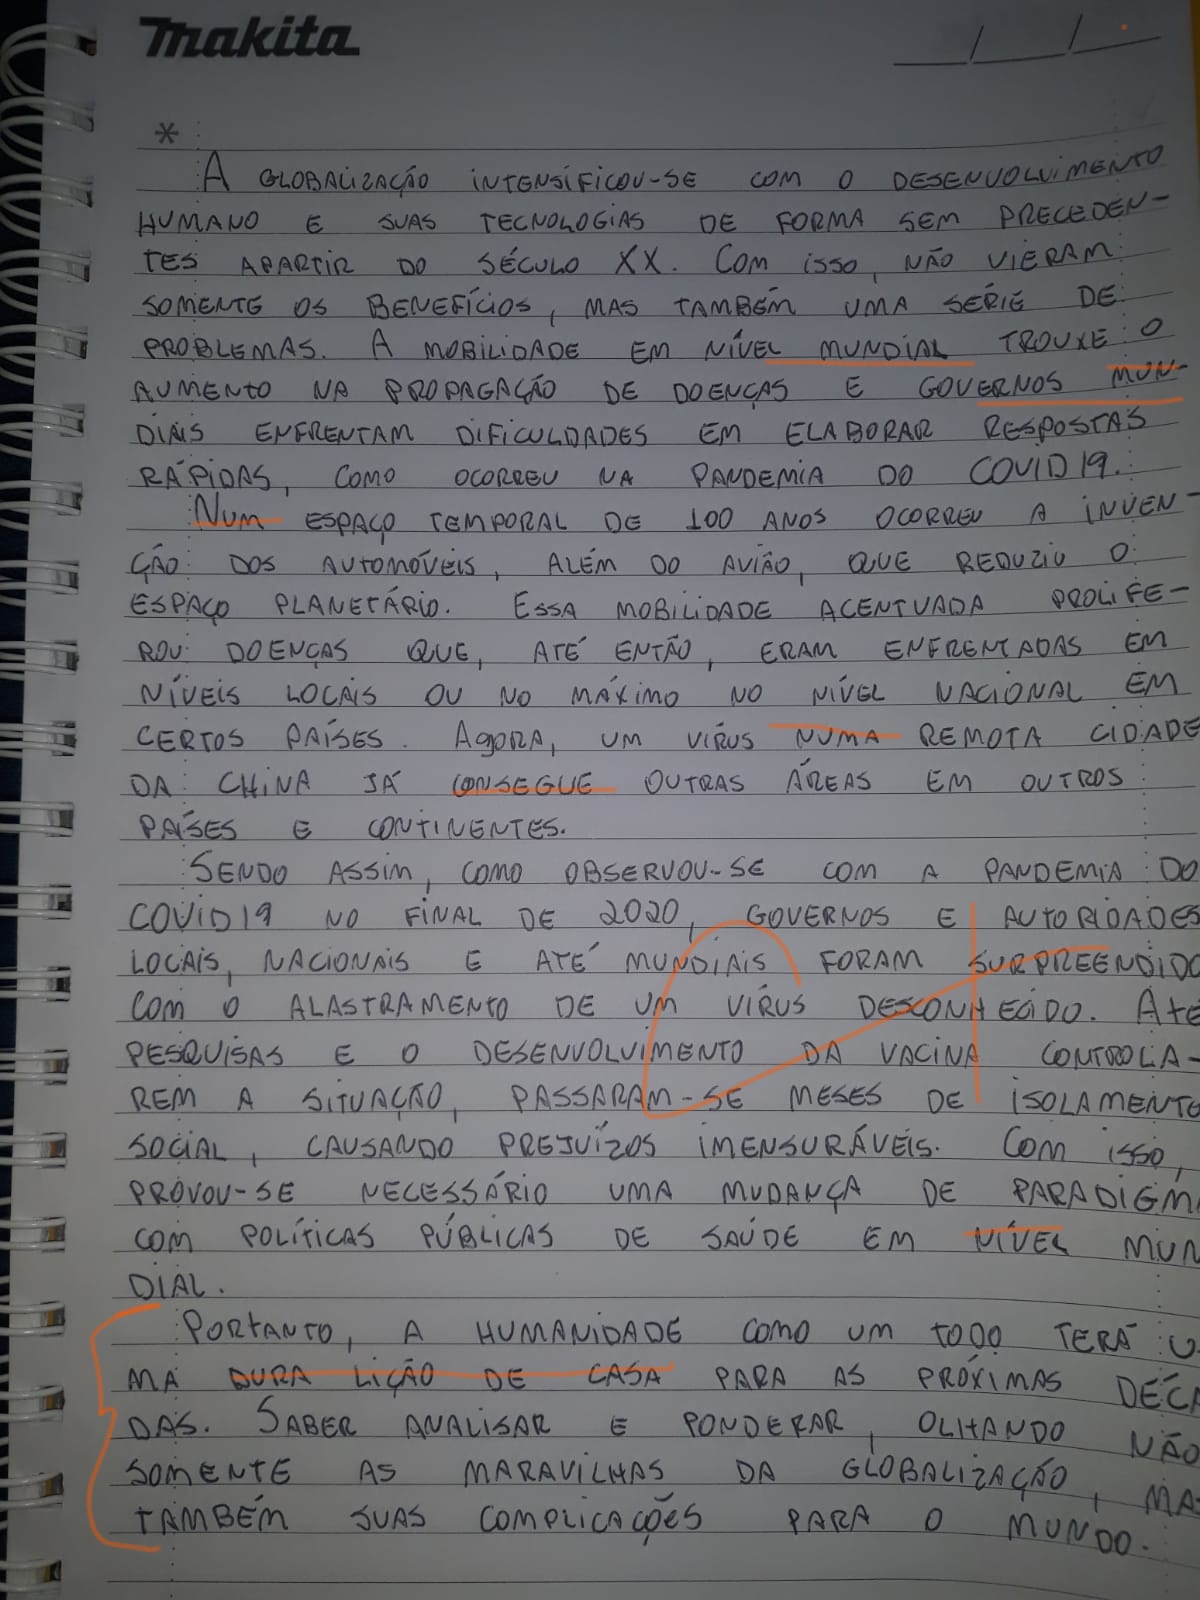 Makita
__/__/__
*
A GLOBALIZAÇÃO INTENSIFICOU-SE COM O DESENVOLVIMENTO
HUMANO E SUAS TECNOLOGIAS DE FORMA SEM PRECEDEN-
TES APARTIR DO SÉCULO XX. COM ISSO, NÃO VIERAM
SOMENTE OS BENEFÍCIOS, MAS TAMBÉM UMA SÉRIE DE
PROBLEMAS. A MOBILIDADE EM NÍVEL MUNDIAL TROUXE O
AUMENTO NA PROPAGAÇÃO DE DOENÇAS E GOVERNOS MUN-
DIAIS ENFRENTAM DIFICULDADES EM ELABORAR RESPOSTAS
RÁPIDAS, COMO OCORREU NA PANDEMIA DO COVID19.
NUM ESPAÇO TEMPORAL DE 100 ANOS OCORREU A INVEN-
ÇÃO DOS AUTOMÓVEIS, ALÉM DO AVIÃO, QUE REDUZIU O
ESPAÇO PLANETÁRIO. ESSA MOBILIDADE ACENTUADA PROLIFE-
ROU DOENÇAS QUE, ATÉ ENTÃO, ERAM ENFRENTADAS EM
NÍVEIS LOCAIS OU NO MÁXIMO NO NÍVEL NACIONAL EM
CERTOS PAÍSES. AGORA, UM VÍRUS NUMA REMOTA CIDADE
DA CHINA JÁ CONSEGUE OUTRAS ÁREAS EM OUTROS
PAÍSES E CONTINENTES.
SENDO ASSIM, COMO OBSERVOU-SE COM A PANDEMIA DO
COVID19 NO FINAL DE 2020, GOVERNOS E AUTORIDADES
LOCAIS, NACIONAIS E ATÉ MUNDIAIS FORAM SURPREENDIDO
COM O ALASTRAMENTO DE UM VÍRUS DESCONHECIDO. ATÉ
PESQUISAS E O DESENVOLVIMENTO DA VACINA CONTROLA-
REM A SITUAÇÃO, PASSARAM-SE MESES DE ISOLAMENTO
SOCIAL, CAUSANDO PREJUÍZOS IMENSURÁVEIS. COM ISSO,
PROVOU-SE NECESSÁRIO UMA MUDANÇA DE PARADIGM
COM POLÍTICAS PÚBLICAS DE SAÚDE EM NÍVEL MUN
DIAL.
PORTANTO, A HUMANIDADE COMO UM TODO TERÁ U
MA DURA LIÇÃO DE CASA PARA AS PRÓXIMAS DÉCA
DAS. SABER ANALISAR E PONDERAR, OLHANDO NÃO
SOMENTE AS MARAVILHAS DA GLOBALIZAÇÃO, MA
TAMBÉM SUAS COMPLICAÇÕES PARA O MUNDO.